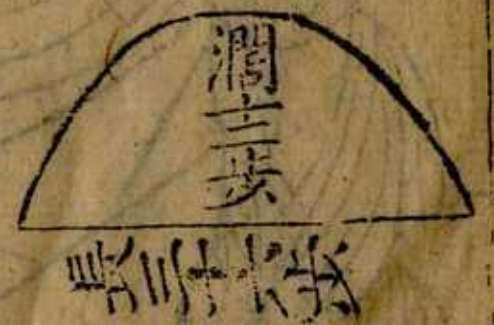 濶十二步
長三十六步